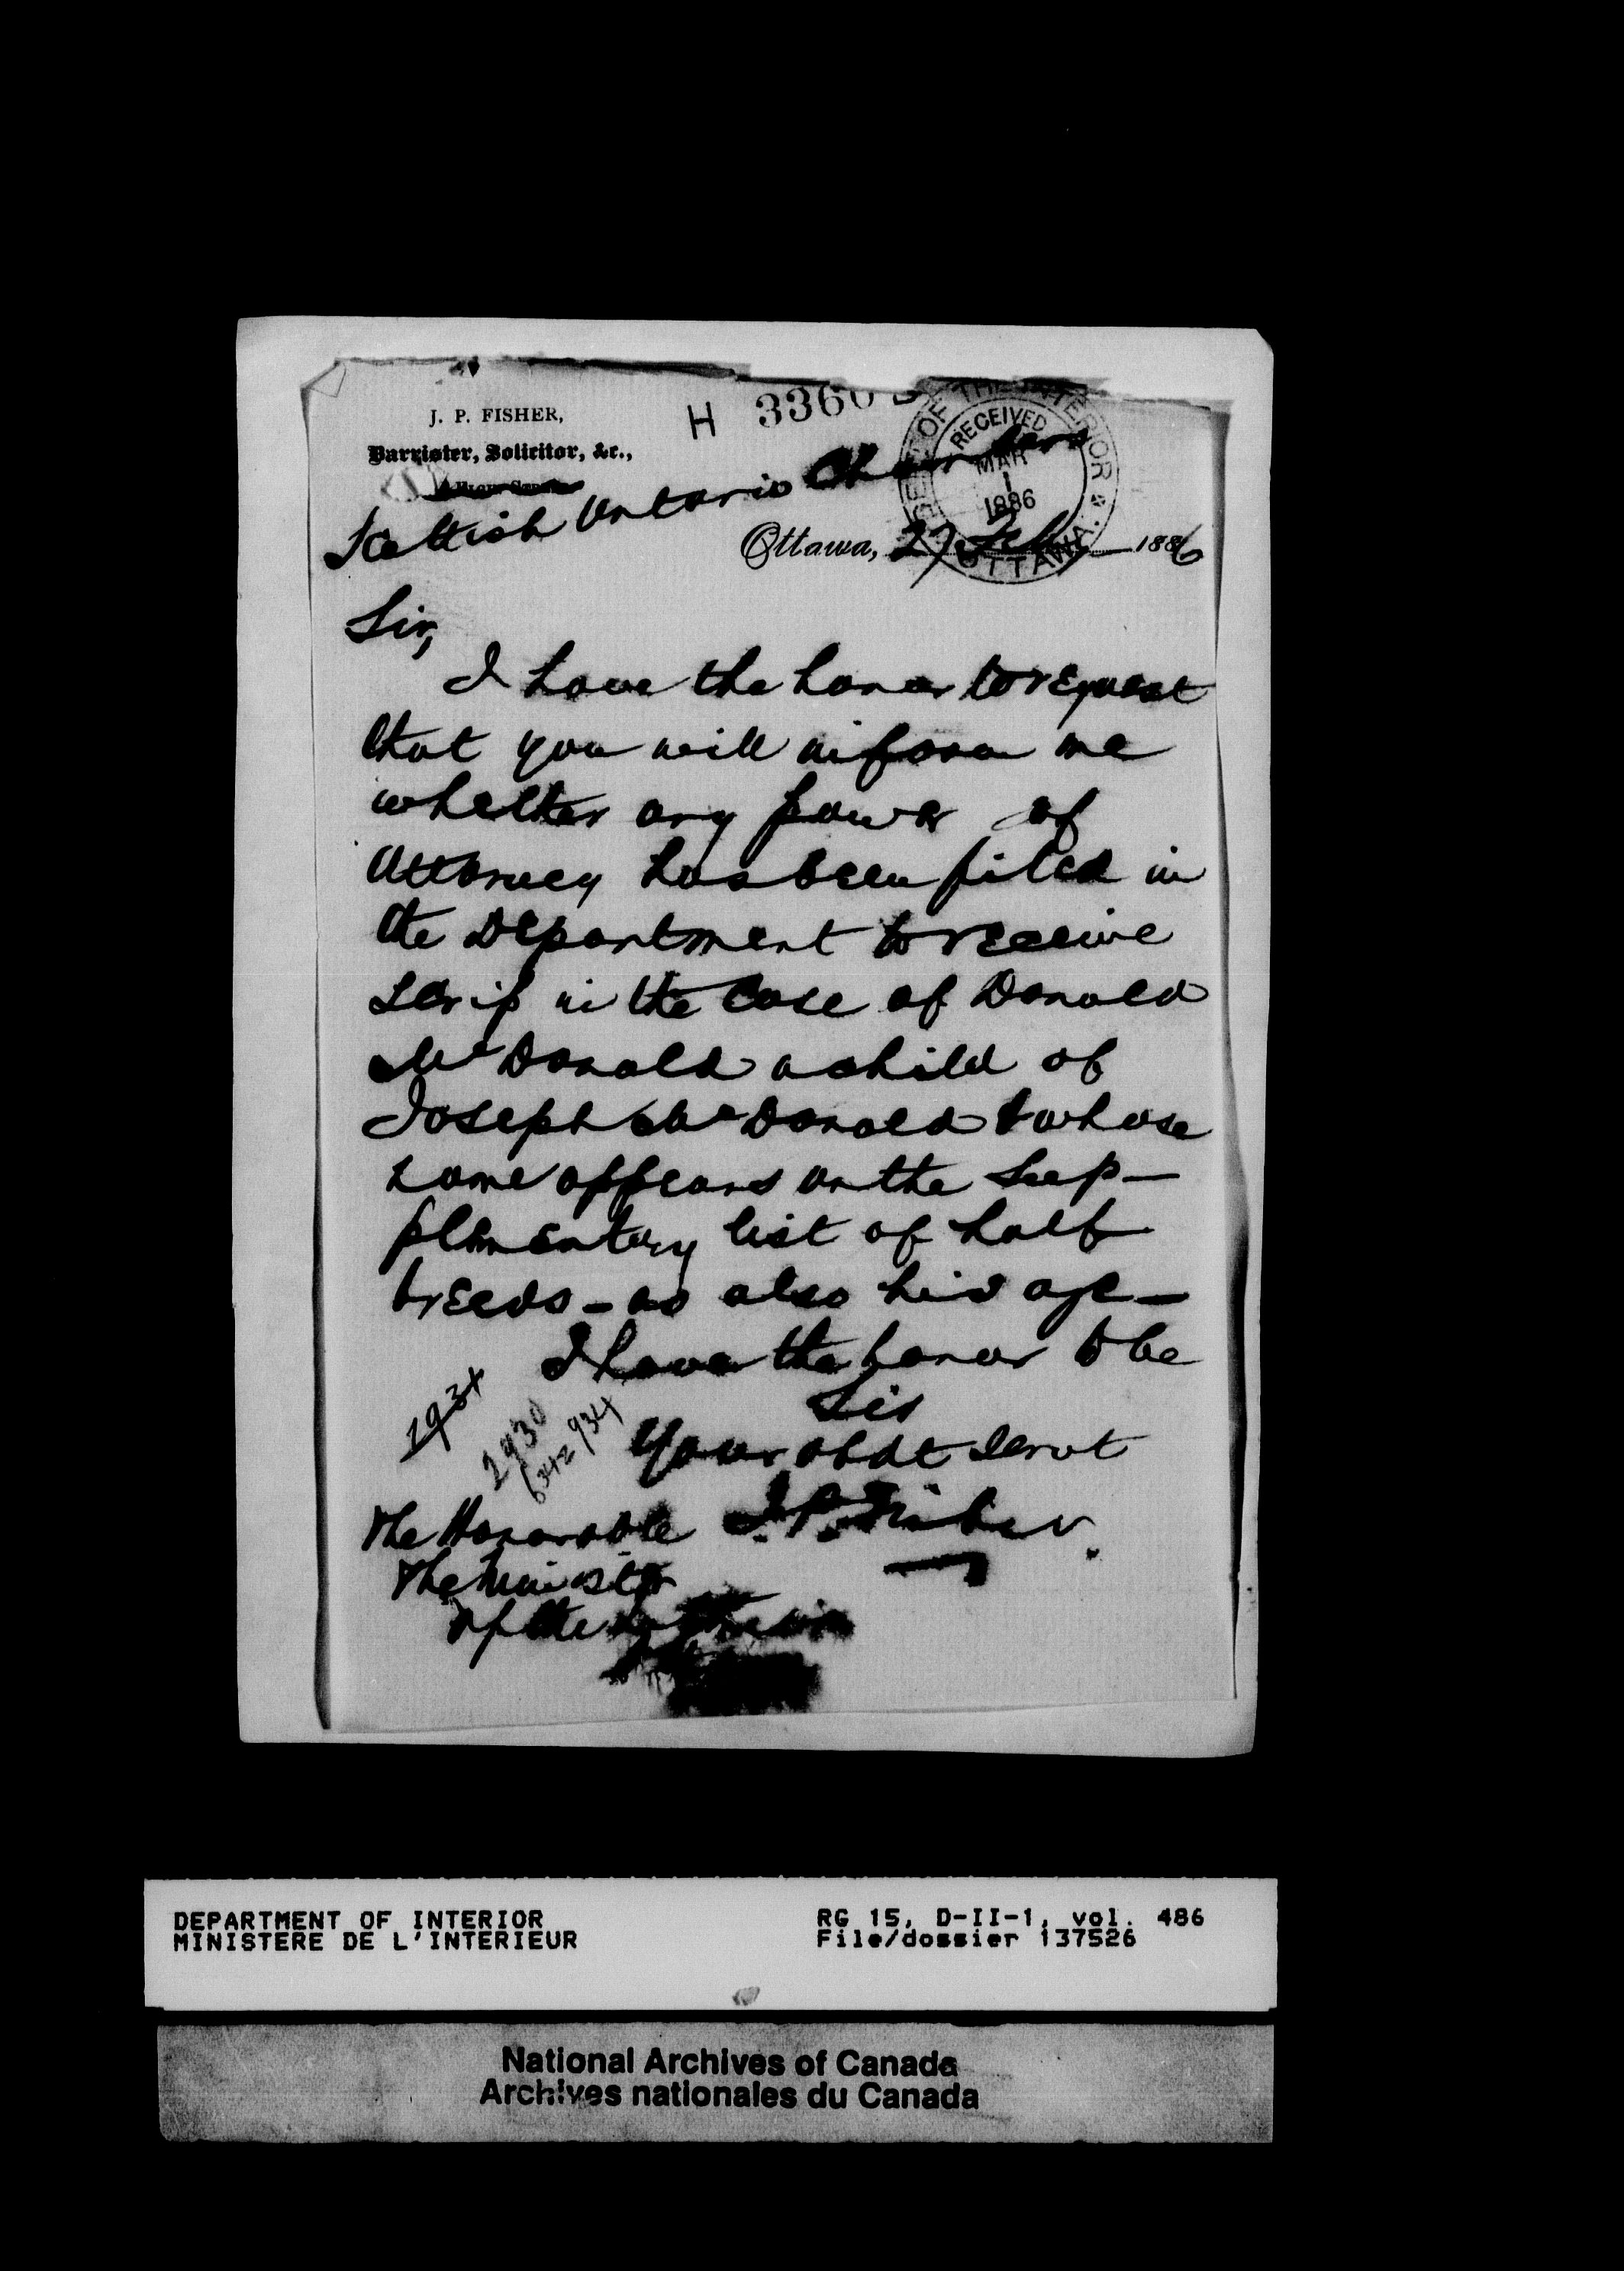 J. P. FISHER,
Barrister, Solicitor, &c.,
H 3360
Scottish Ontario Chambers
DEPT OF THE INTERIOR
RECEIVED
MAR
1
1886
OTTAWA
Ottawa, 27 Feby 1886
Sir,
I have the honor to request
that you will inform me
whether any power of
Attorney has been filed in
the Department to receive
scrip in the case of Donald
McDonald a child of
Joseph McDonald & whose
name appears on the Sup-
plimentary list of half
breeds - as also his age -
I have the honor to be
Sir
Your obdt Servt
2934
2930
J. P. Fisher.
The Honorable
The Minister
of the Interior
DEPARTMENT OF INTERIOR
MINISTERE DE L'INTERIEUR
RG 15, D-II-1, vol. 486
File/dossier 137526
National Archives of Canada
Archives nationales du Canada